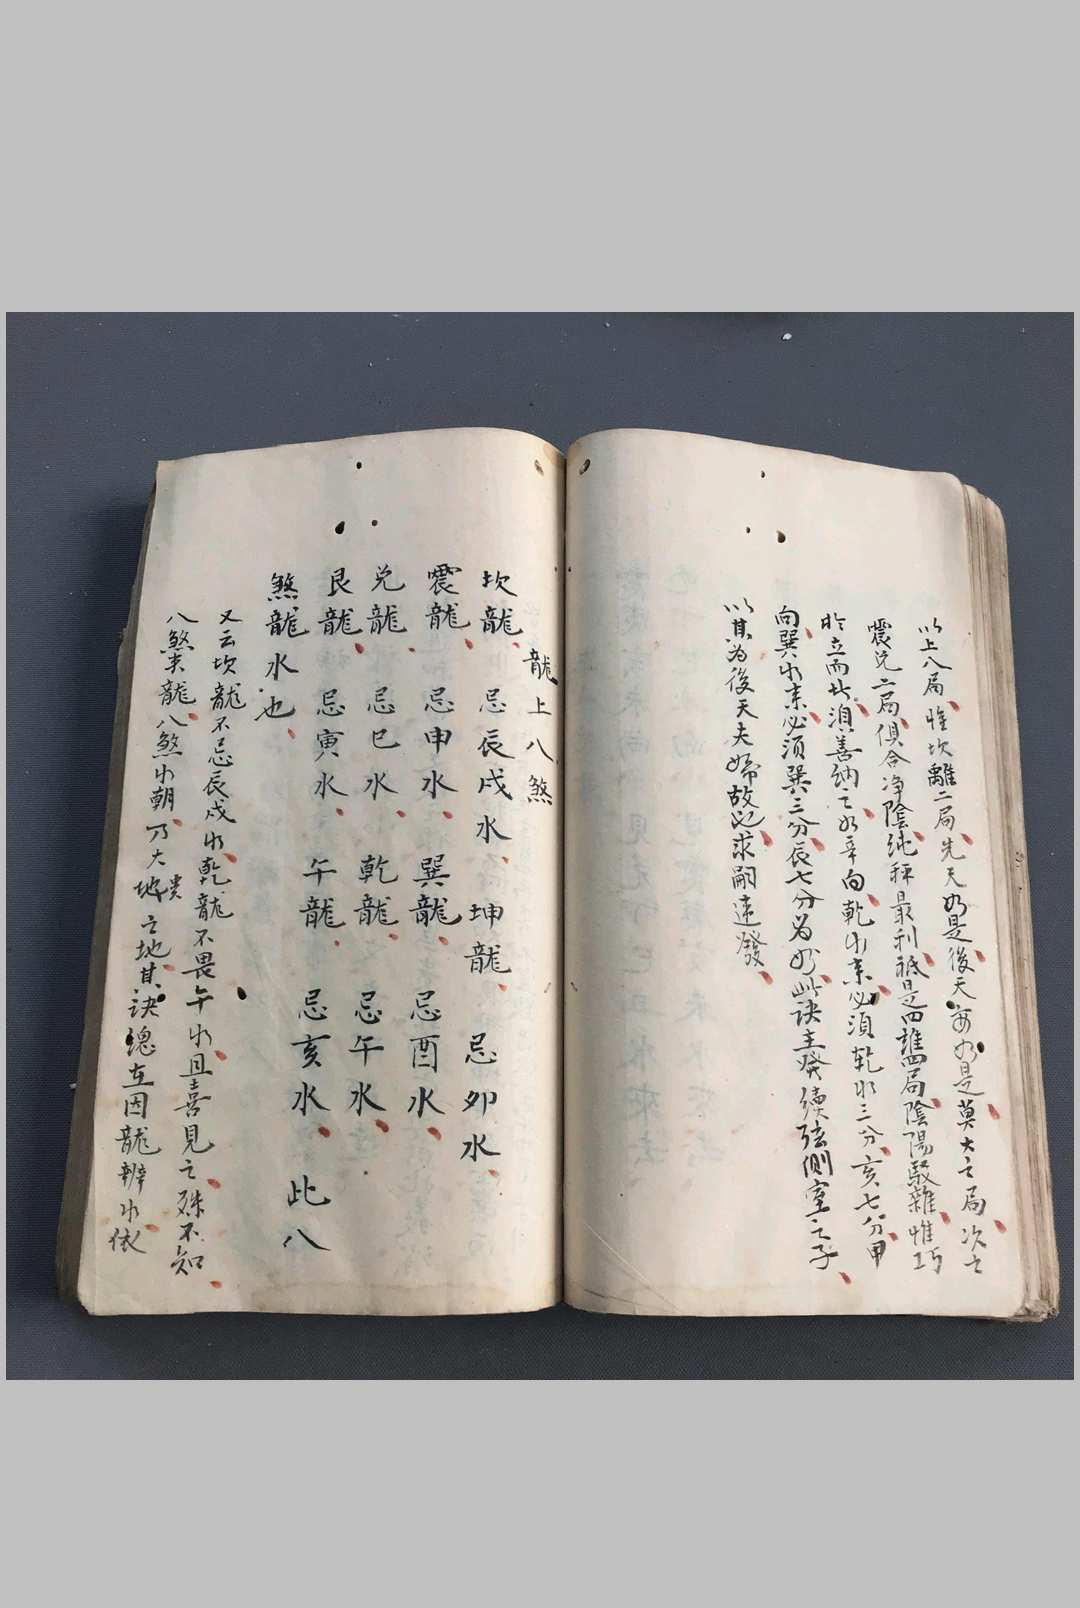 以上八局惟坎離二局先天如是後天亦如是莫大之局次之
震兌二局俱合净陰純秤最利祗是四維四局陰陽駁雜惟巧
於立而北須善納之如辛向乾水来必須乾水三分亥七分甲
向巽水来必須巽三分辰七分為妙此訣主發續弦側室之子
以其為後天夫婦故也求嗣速發
龍上八煞
坎龍 忌辰戍水 坤龍 忌卯水
震龍 忌申水 巽龍 忌酉水
兌龍 忌巳水 乾龍 忌午水
艮龍 忌寅水 午龍 忌亥水 此八
煞龍水也
又云坎龍不忌辰戍水乾龍不畏午水且喜見之殊不知
八煞夹龍八煞水朝乃大地貴之地其訣總在因龍辨水依